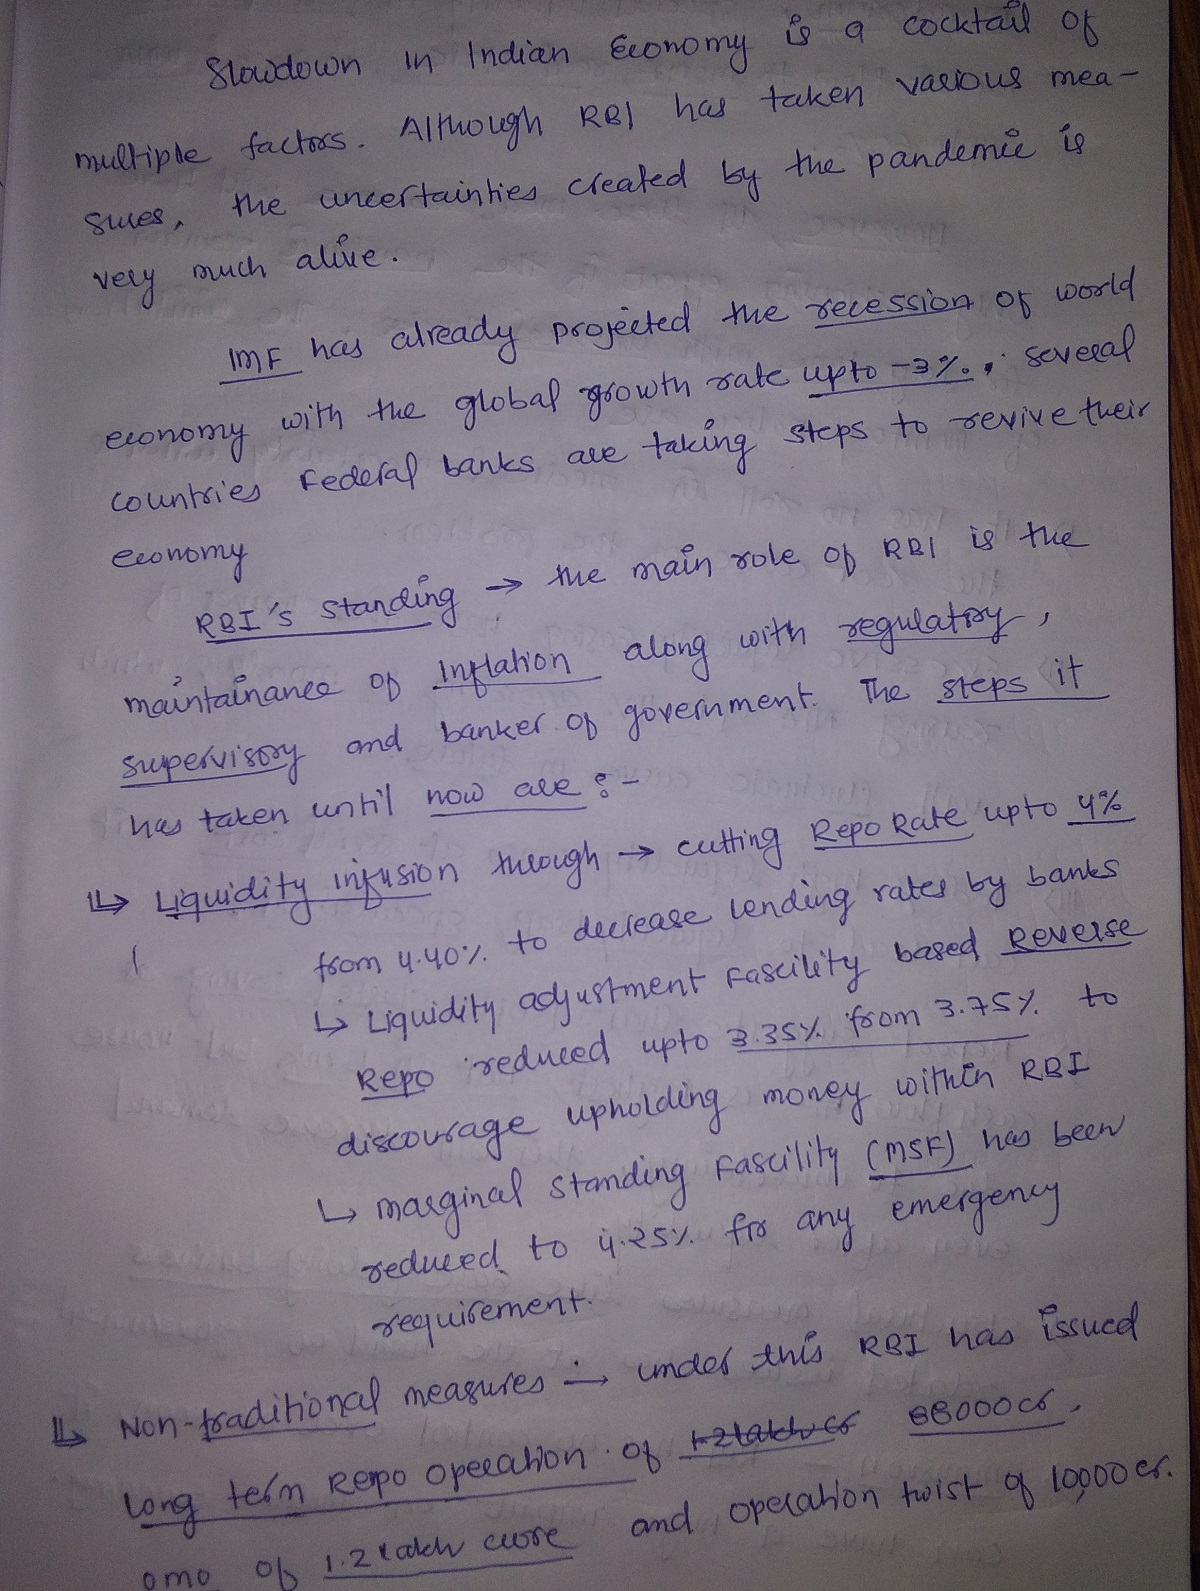 Slowdown in Indian Economy is a cocktail of
multiple factors. Although RBI has taken various mea-
sures, the uncertainties created by the pandemic is
very much alive.
IMF has already projected the recession of world
economy with the global growth rate upto -3%. Several
countries Federal banks are taking steps to revive their
economy
RBI's standing → the main role of RBI is the
maintainance of Inflation along with regulatory,
supervisory and banker of government. The steps it
has taken until now are :-
↳ Liquidity infusion through → cutting Repo Rate upto 4%
from 4.40% to decrease lending rates by banks
↳ Liquidity adjustment Fascility based Reverse
Repo reduced upto 3.35% from 3.75% to
discourage upholding money within RBI
↳ Marginal Standing Fascility (MSF) has been
reduced to 4.25% for any emergency
requirement.
↳ Non-traditional measures → under this RBI has issued
long term Repo operation of 1.2 lakh cr 88000cr.
OMO of 1.2 lakh crore and operation twist of 10,000 cr.